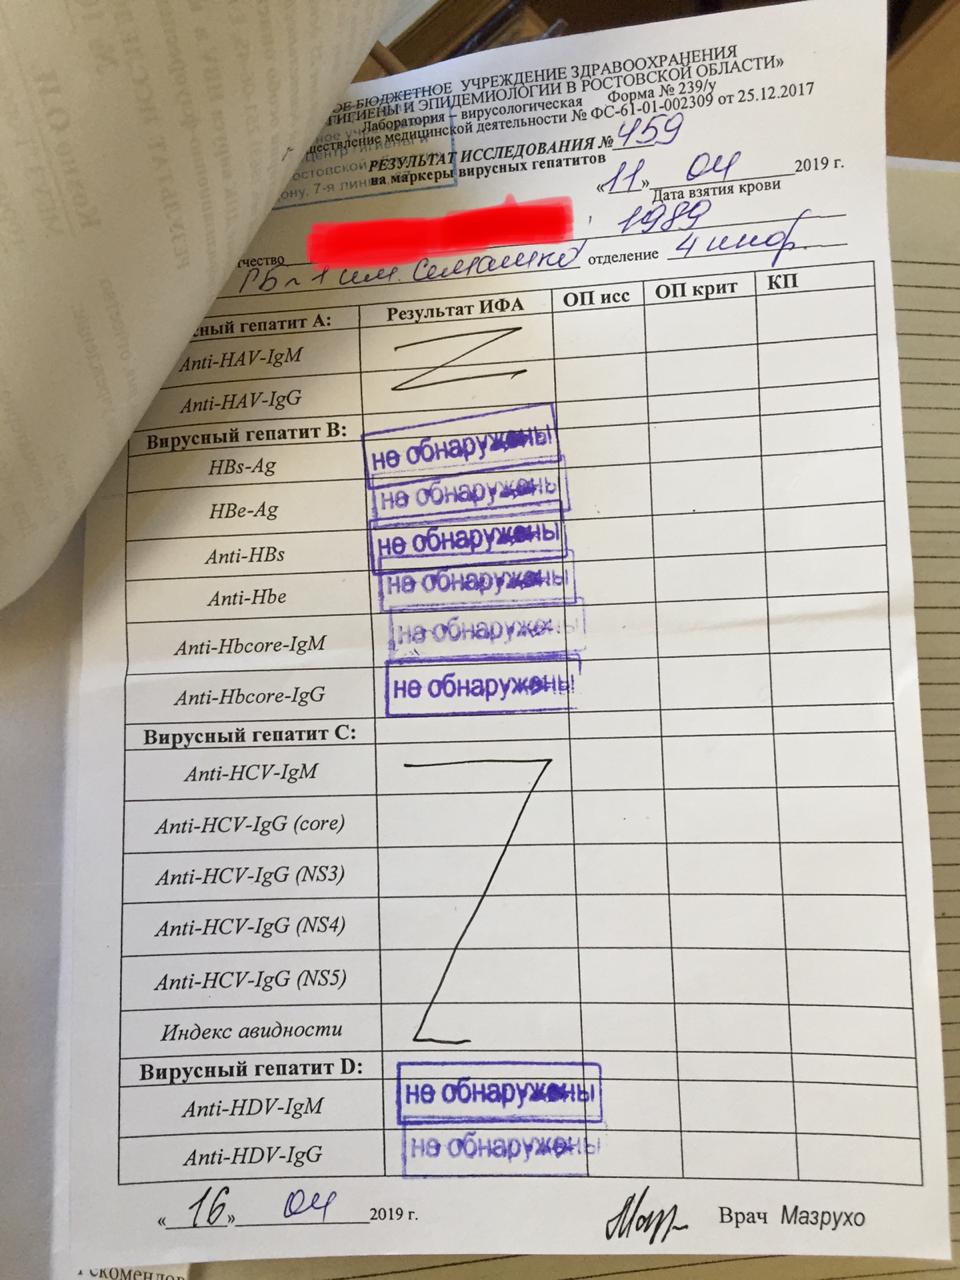 БЮДЖЕТНОЕ УЧРЕЖДЕНИЕ ЗДРАВООХРАНЕНИЯ
ГИГИЕНЫ И ЭПИДЕМИОЛОГИИ В РОСТОВСКОЙ ОБЛАСТИ»
Лаборатория – вирусологическая Форма № 239/у
медицинской деятельности № ФС-61-01-002309 от 25.12.2017
РЕЗУЛЬТАТ ИССЛЕДОВАНИЯ № 459
на маркеры вирусных гепатитов
«11» 04 2019 г.
Дата взятия крови
1989
ГБ №1 им. Семашко отделение 4 инф.
Результат ИФА ОП исс ОП крит КП
гепатит А:
Anti-HAV-IgM
Anti-HAV-IgG
Вирусный гепатит В:
HBs-Ag не обнаружены
HBe-Ag не обнаружены
Anti-HBs не обнаружены
Anti-Hbe не обнаружены
Anti-Hbcore-IgM не обнаружены
Anti-Hbcore-IgG не обнаружены
Вирусный гепатит С:
Anti-HCV-IgM
Anti-HCV-IgG (core)
Anti-HCV-IgG (NS3)
Anti-HCV-IgG (NS4)
Anti-HCV-IgG (NS5)
Индекс авидности
Вирусный гепатит D:
Anti-HDV-IgM не обнаружены
Anti-HDV-IgG не обнаружены
«16» 04 2019 г. Врач Мазрухо